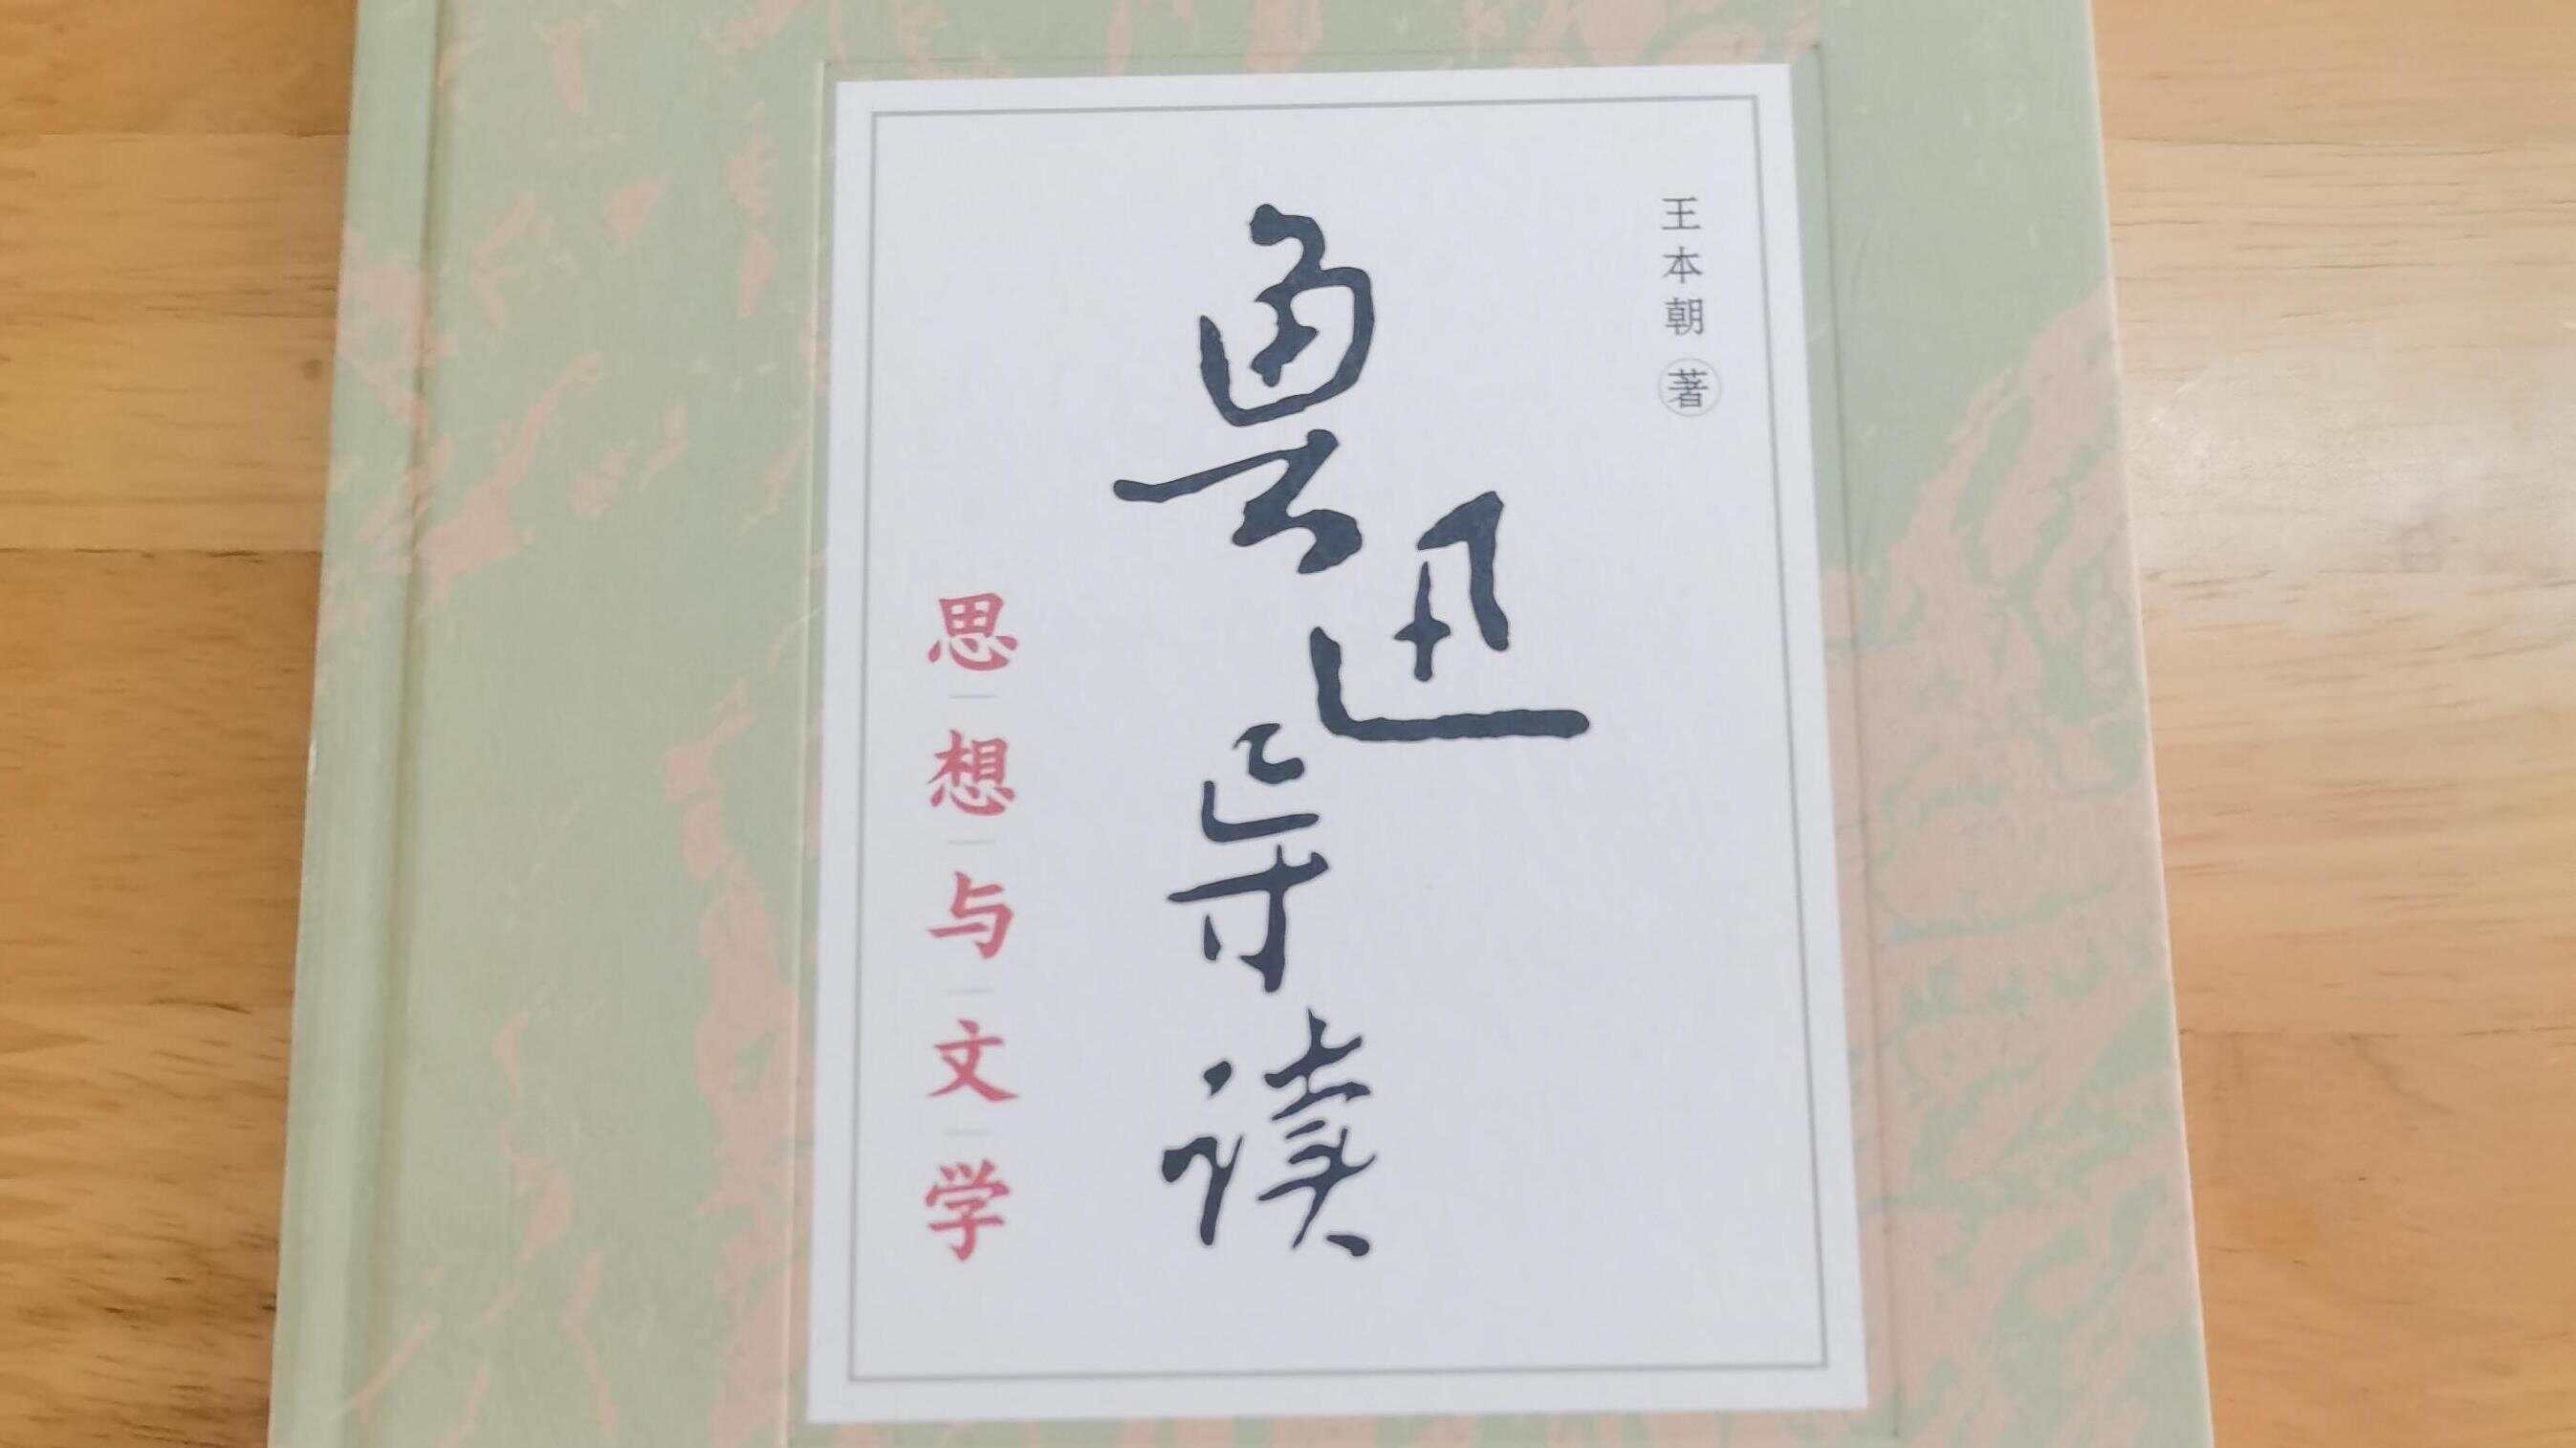 王本朝 著
鲁迅导读
思想与文学